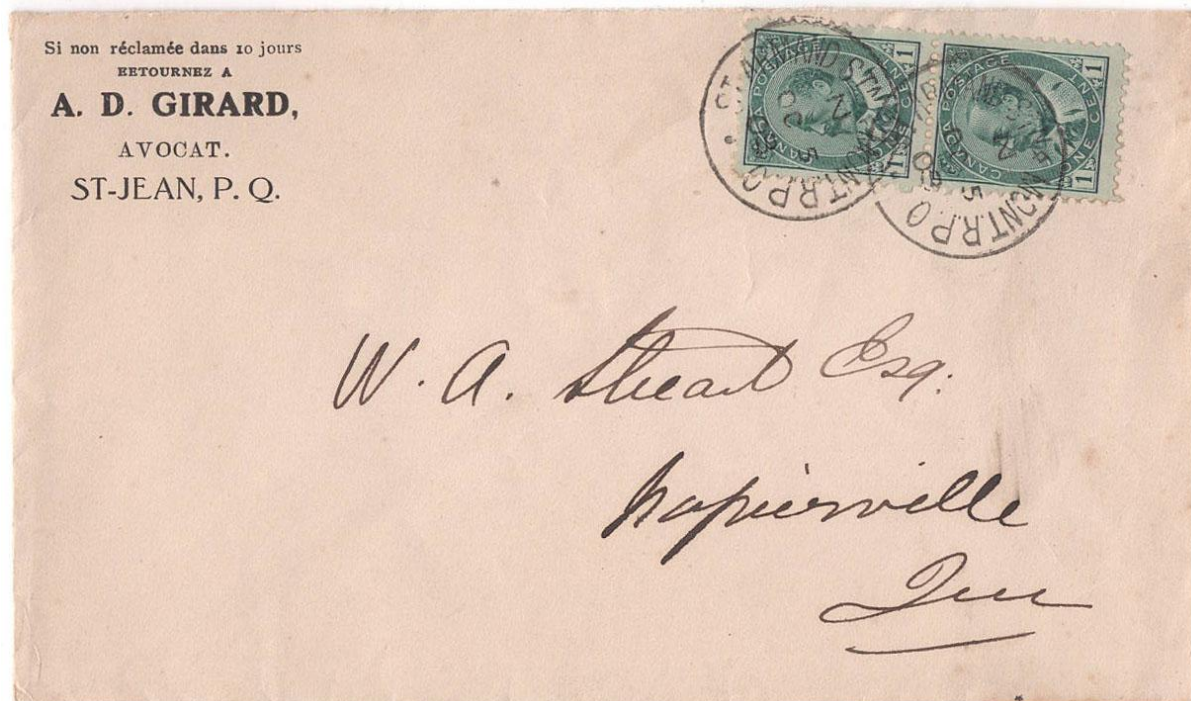 Si non réclamée dans 10 jours
EETOURNEZ A
A. D. GIRARD,
AVOCAT.
ST-JEAN, P. Q.
CANADA POSTAGE
ONE CENT
1 1
CANADA POSTAGE
ONE CENT
1 1
MONT.R.P.O
MONT.R.P.O
W. A. Stuart Esq.
Napierville
Que